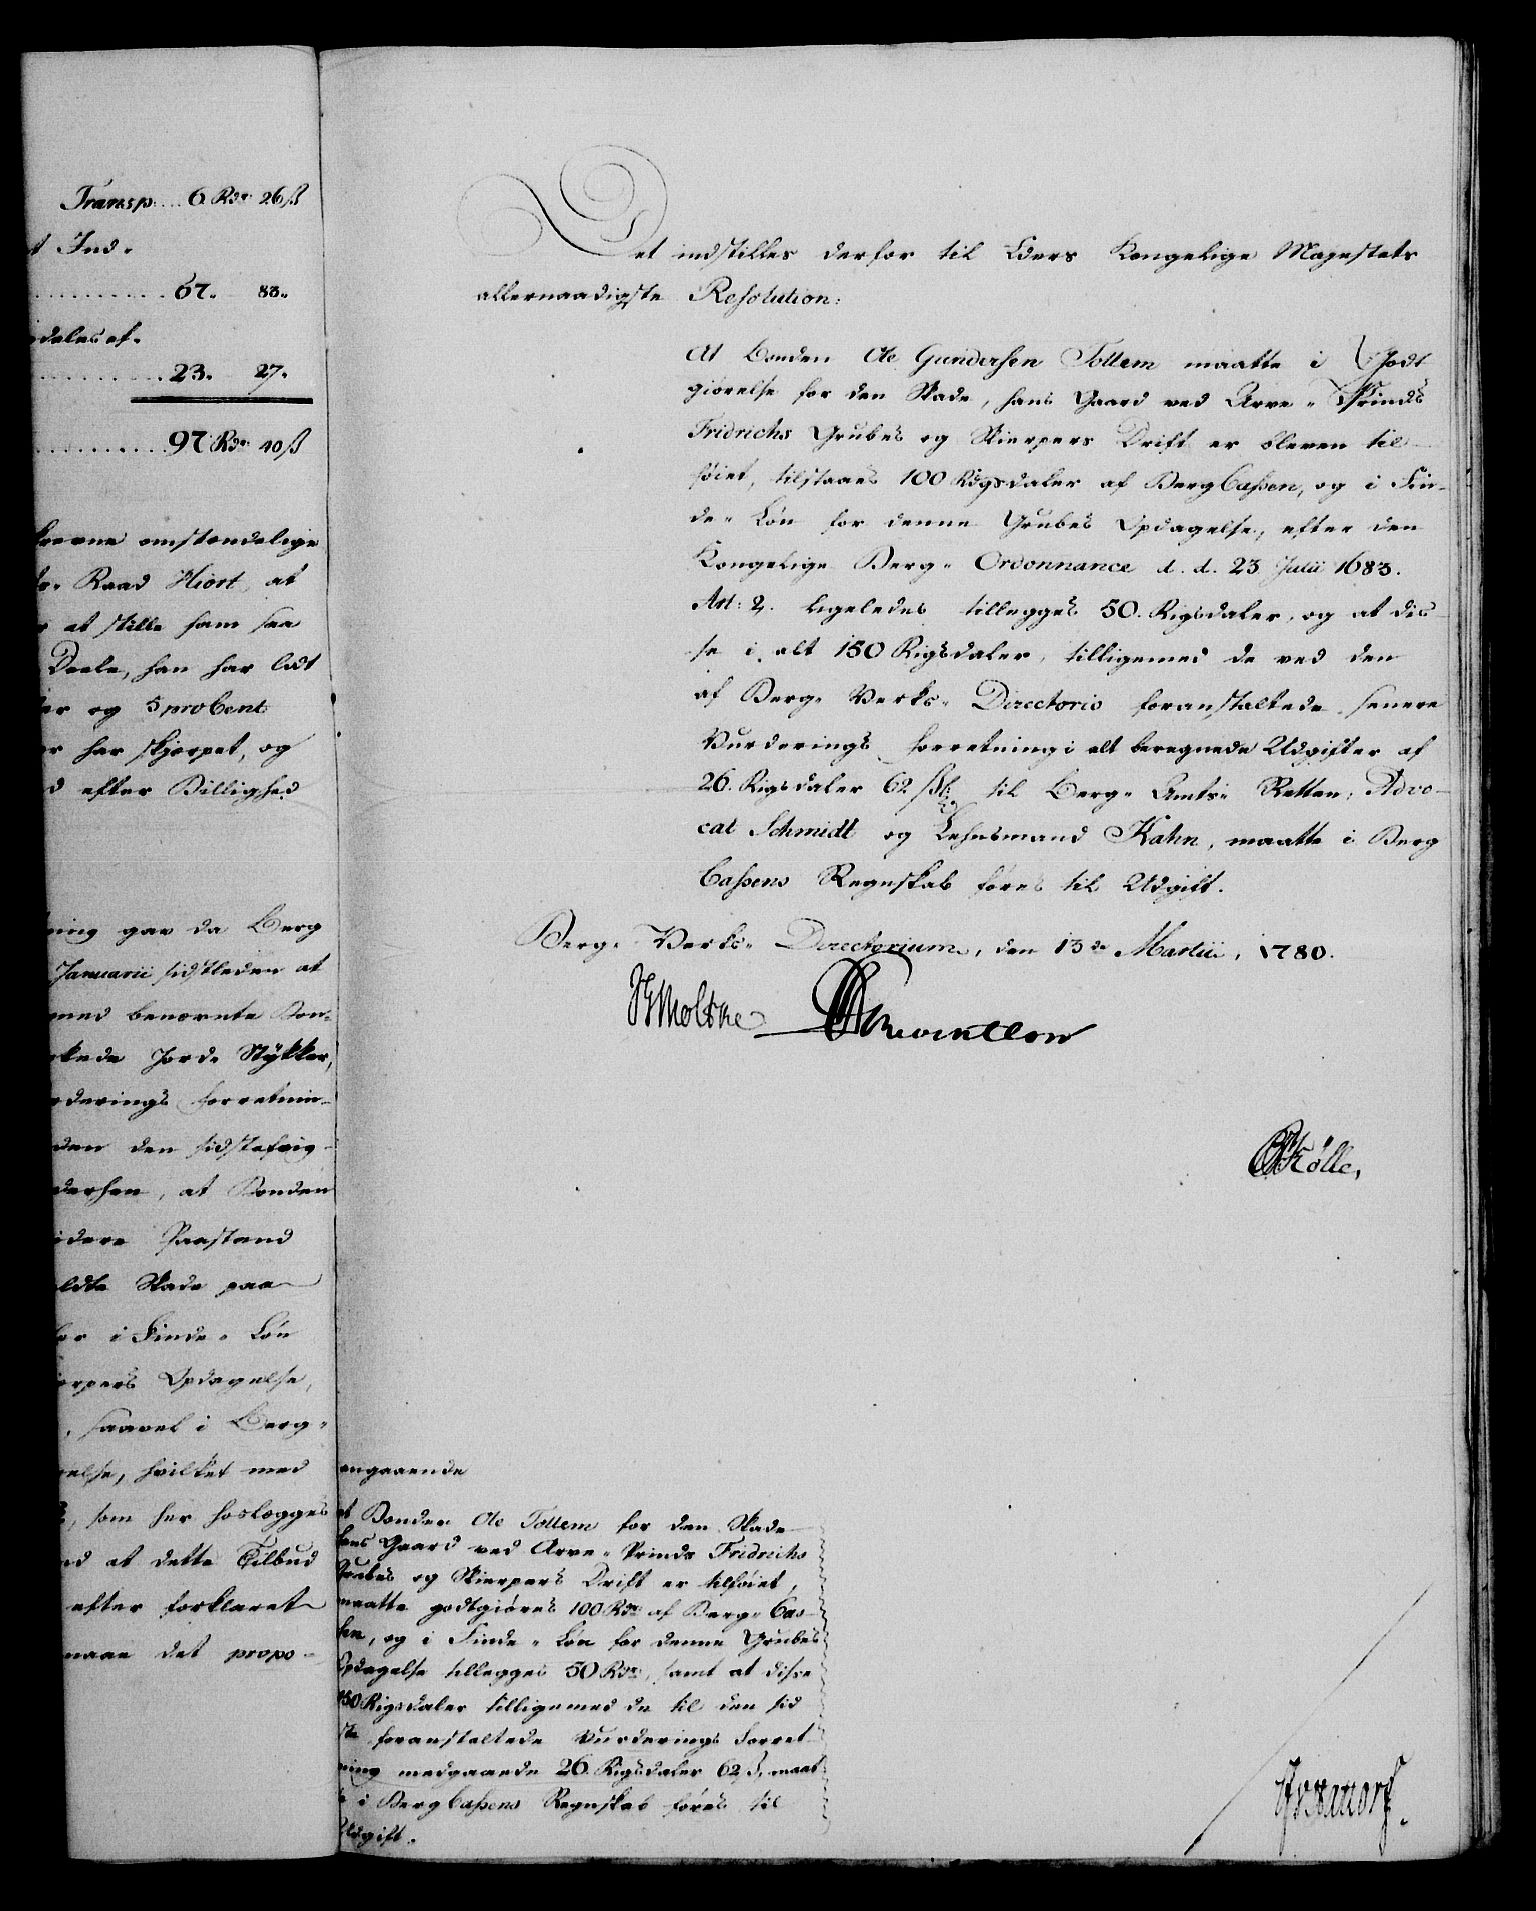 Transp:....6 Rdr 26ß
t Ind=
..........67. 83.
deles af.
..........23. 27.
..........97 Rdr 40ß
krevne omstændelige
Raad Hiort, at
at stille ham saa
Deele, han har ladt
er og 5 proCent
er har skjerpet, og
d efter Billighed
ning gav da Berg
Januarii sidstleden at
med benævnte Bon-
kede Jord= Stykker,
rderings Forretnin-
den den sidstafvig-
dersen, at Bonden
idere Paastand
ldte Skade paa
for i Finde= Løn
erpers Opdagelse,
, saavel i Berg=
else, hvilket med
, som her hoslægges
d at dette Tilbud
efter forklaret
maae det propo-
Det indstilles derfor til Eders Kongelige Majestets
allernaadigste Resolution:
At Bonden Ole Gundersen Tottem maatte i Godt
giørelse for den Skade, hans Gaard ved Arve= Prinds
Fridrichs Grubes og Skierpers Drift er bleven til-
føiet, tilstaaes 100 Rigsdaler af BergCassen, og i Fin-
de= Løn for denne Grubes Opdagelse, efter den
Kongelige Berg= Ordonnance d. d. 23 Julii 1683.
Art: 2. ligeledes tillegges 50. Rigsdaler, og at dis-
se i alt 150 Rigsdaler, tilligemed de ved den
af Berg= Verks= Directorio foranstaltede senere
Vurderings Forretning i alt beregnede Udgifter af
26. Rigsdaler 62 ß til Berg= Amts= Retten, Advo-
cat Schmidt og Lehnsmand Kahn, maatte i Berg
Cassens Regnskab føres til Udgift.
Berg= Verks= Directorium, den 13de Martii, 1780.
Moltke Reventlow
Kølle,
angaaende
at Bonden Ole Tottem for den Skade
hans Gaard ved Arve= Prinds Fridrichs
Grubes og Skierpers Drift er tilføiet,
maatte godtgiøres 100 Rdr af Berg= Cas-
sen, og i Finde= Løn for denne Grubes
Opdagelse tillegges 50 Rdr, samt at disse
150 Rigsdaler tilligemed de til den sid
ste foranstaltede Vurderings Forret-
ning medgaaende 26 Rigsdaler 62 ß, maat
te i BergCassens Regnskab føres til
Udgift.